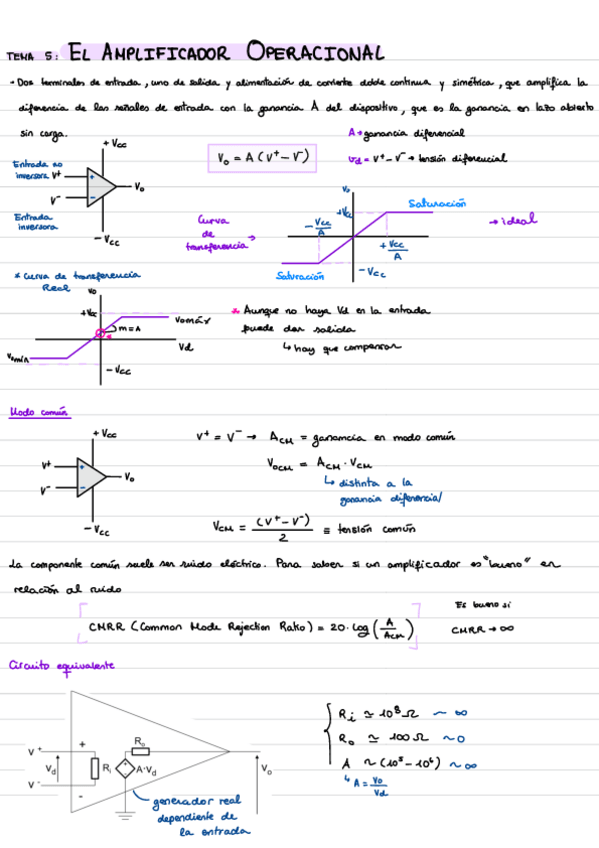 TEMA 5: EL AMPLIFICADOR OPERACIONAL
- Dos terminales de entrada, uno de salida y alimentación de corriente doble continua y simétrica, que amplifica la
diferencia de las señales de entrada con la ganancia A del dispositivo, que es la ganancia en lazo abierto
sin carga.
+ Vcc
Entrada no
inversora V+
V-
Entrada
inversora
+
-
Vo
- Vcc
Vo = A (V+ - V-)
A → ganancia diferencial
vd = V+ - V- → tensión diferencial
Curva
de
transferencia →
Vo
+Vcc
Saturación
- Vcc/A
+ Vcc/A
Saturación
- Vcc
→ ideal
* Curva de transferencia
Real
vo
+Vcc
m = A
Vomáx
Vd
Vomín
- Vcc
* Aunque no haya Vd en la entrada
puede dar salida
↳ hay que compensar
Modo común
+ Vcc
V+
V-
+
-
Vo
- Vcc
V+ = V- → ACM = ganancia en modo común
VoCM = ACM · VCM
↳ distinta a la
ganancia diferencial
VCM = (V+ - V-)/2 ≡ tensión común
La componente común suele ser ruido eléctrico. Para saber si un amplificador es "bueno" en
relación al ruido
CMRR (Common Mode Rejection Ratio) = 20 · log (A/ACM)
Es bueno si
CMRR → ∞
Circuito equivalente
V +
Vd
V -
+
-
Ri
Ro
A·Vd
Vo
generador real
dependiente de
la entrada
Ri ≃ 10⁸ Ω ~ ∞
Ro ≃ 100 Ω ~ 0
A ~ (10⁵ - 10⁶) ~ ∞
↳ A = Vo/Vd